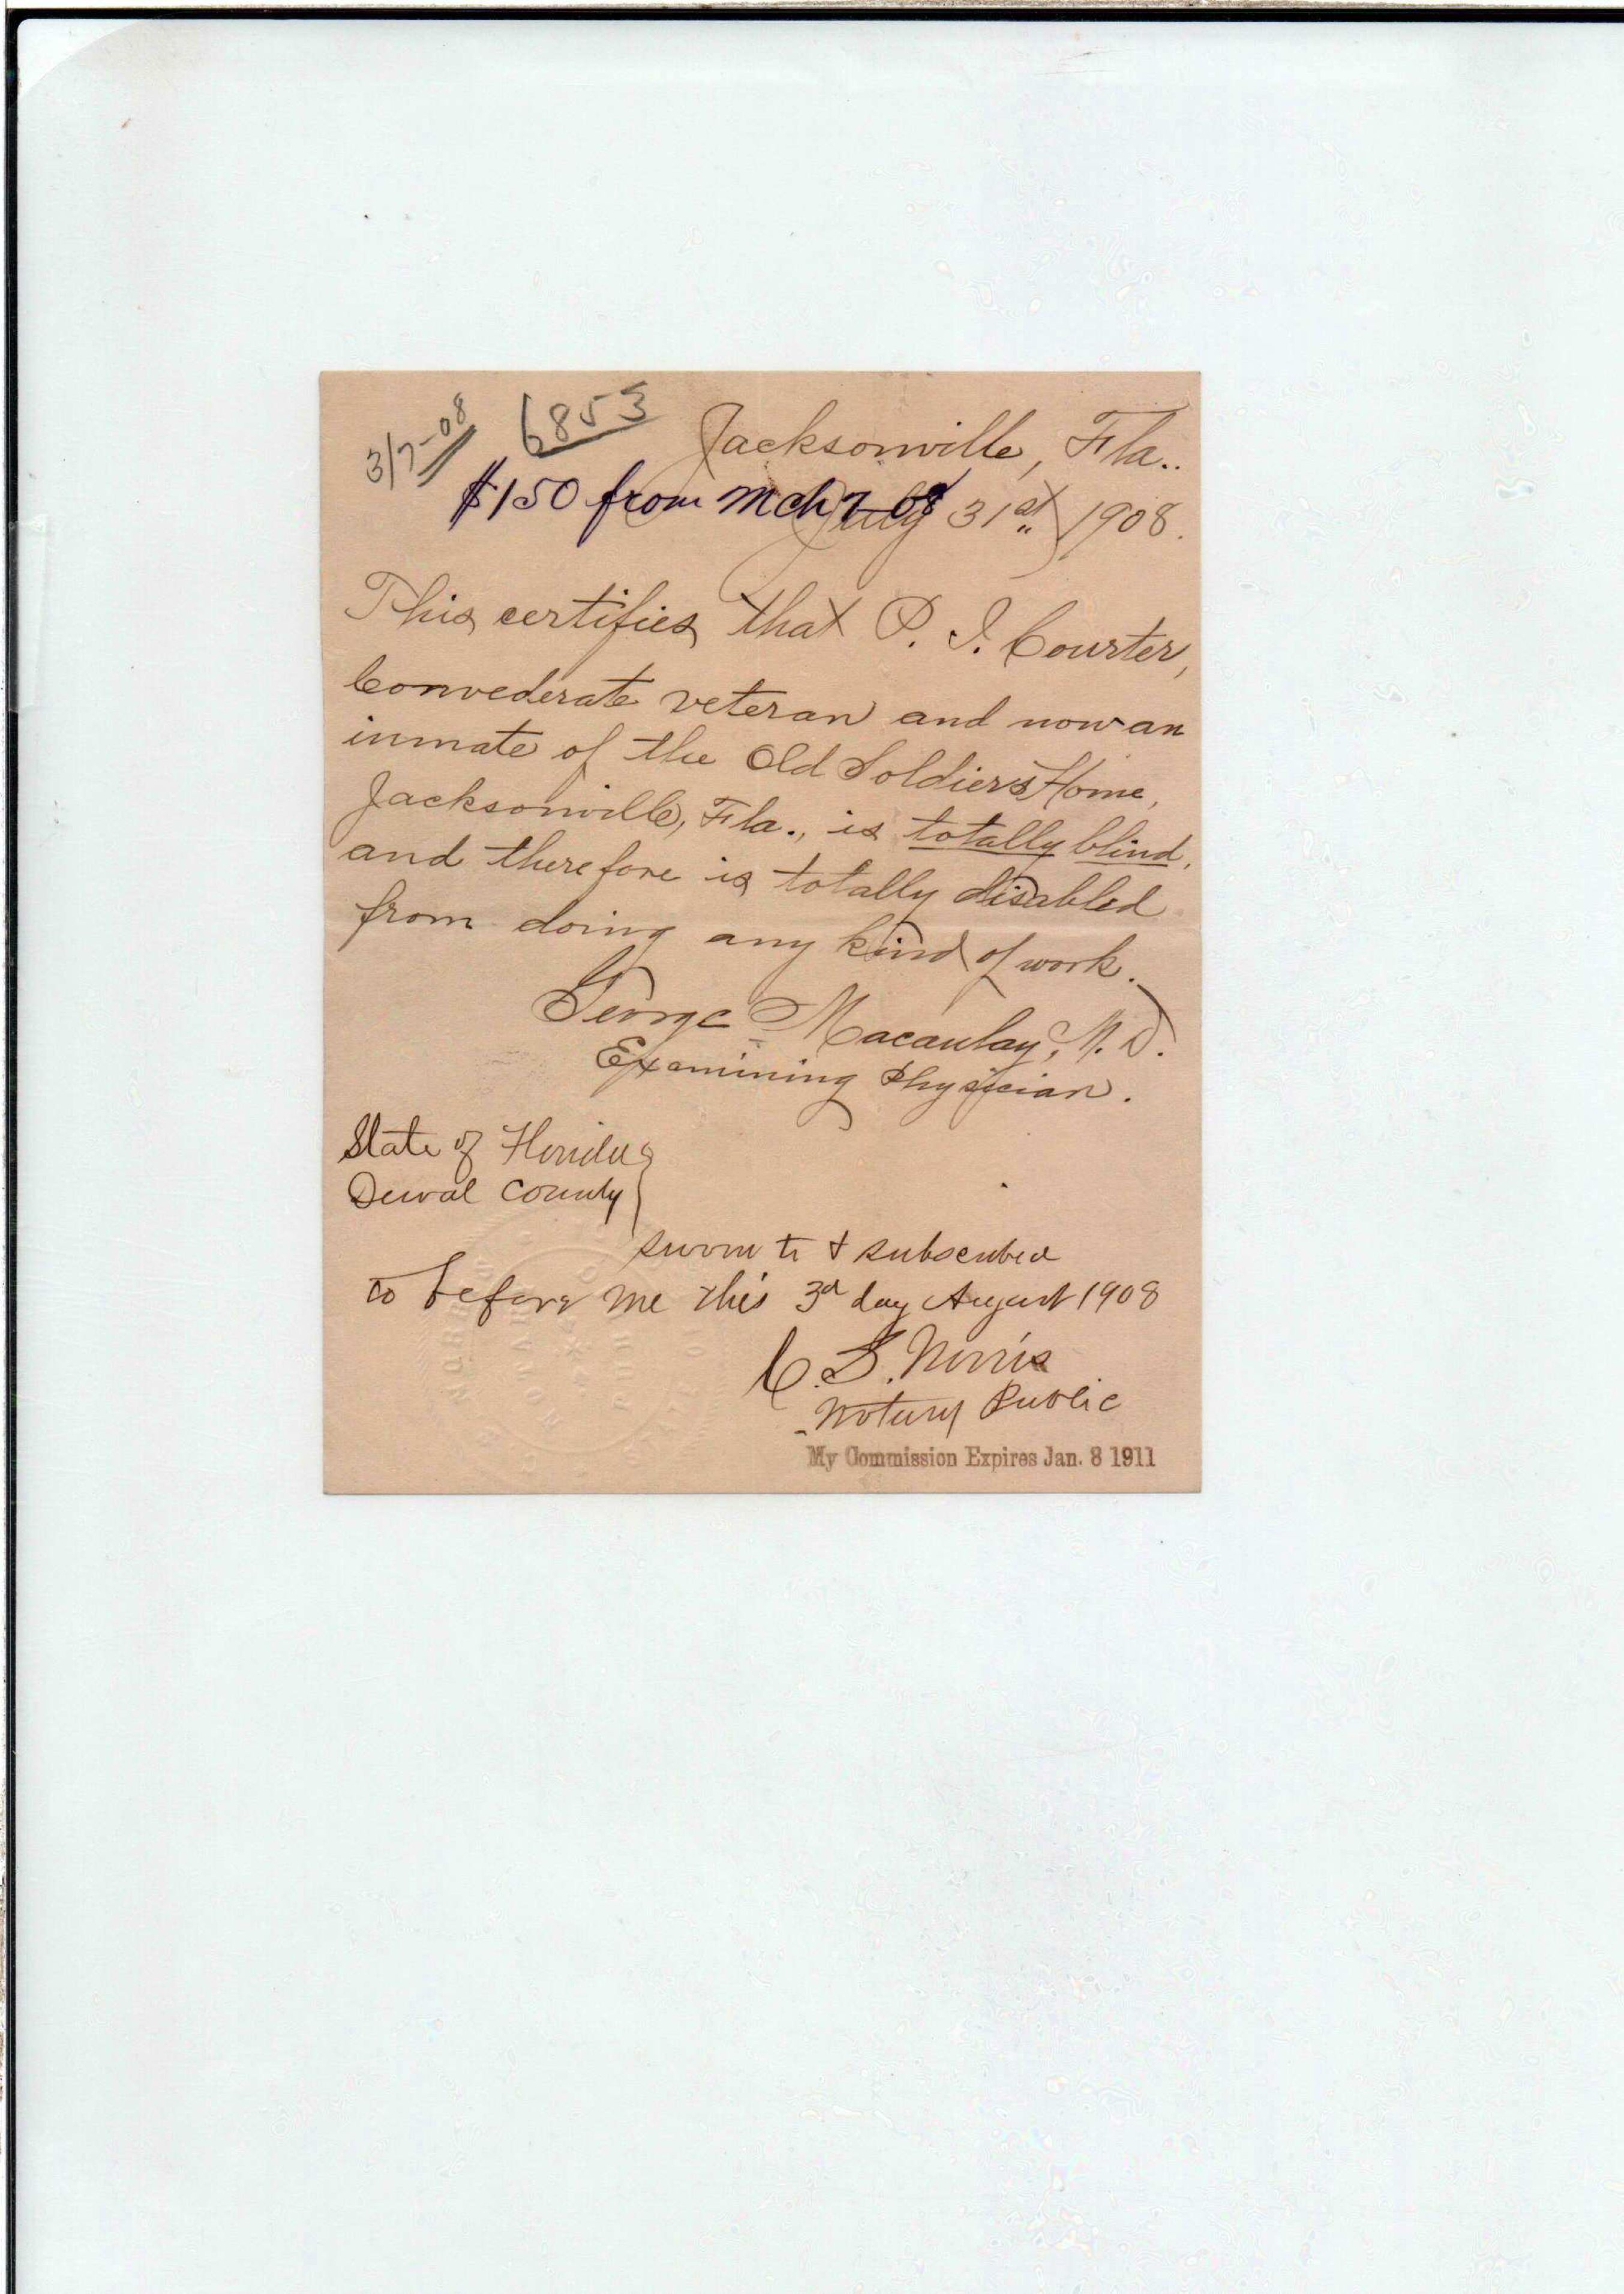 3/7-08
6853
Jacksonville, Fla..
$150 from Mch 7 08
July 31st, 1908.
This certifies that P. I. Courter,
Convederate veteran and now an
inmate of the Old Soldiers Home,
Jacksonville, Fla., is totally blind,
and therefore is totally disabled
from doing any kind of work.
George Macaulay, M. D.
Examining Physician.
State of Florida
Duval County
Sworn to & subscribed
to before me this 3d day August 1908
C. S. Norris
Notary Public
My Commission Expires Jan. 8 1911